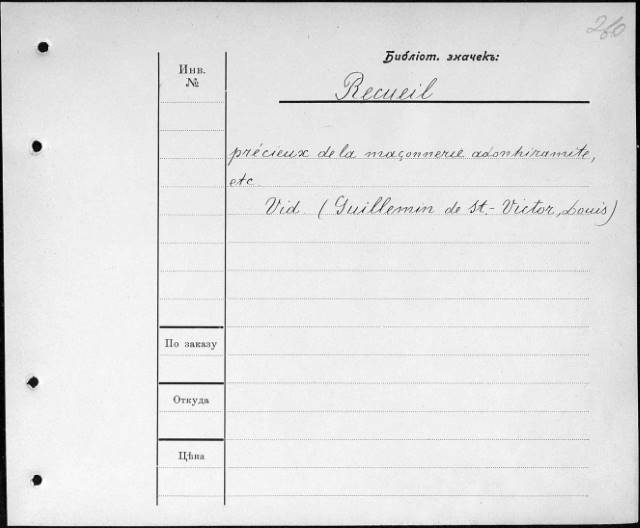 260
Библіот. значекъ:
Инв.
№
Recueil
précieux de la maçonnerie adonhiramite,
etc.
Vid. (Guillemin de St.-Victor, Louis)
По заказу
Откуда
Цѣна